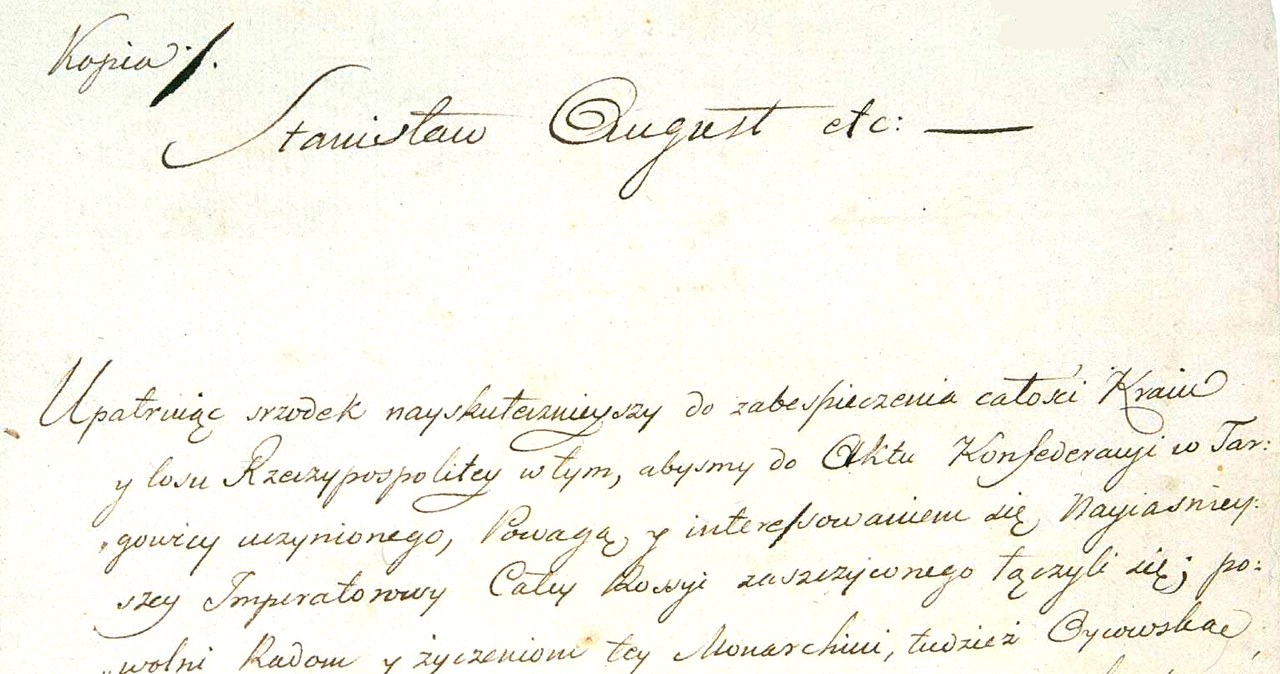 Kopia ·/.
Stanisław August etc: —
Upatruiąc srzodek nayskutecznieyszy do zabespieczenia całości Kraiu
y losu Rzeczypospolitey w tym, abysmy do Aktu Konfederacyi w Tar:
gowicy uczynionego, Powagą y interessowaniem się Nayiasniey:
szey Imperatorowy Całey Rossyi zaszczyconego łączyli się; po:
wolni Radom y życzeniom tey Monarchini, tudzież Oycowską